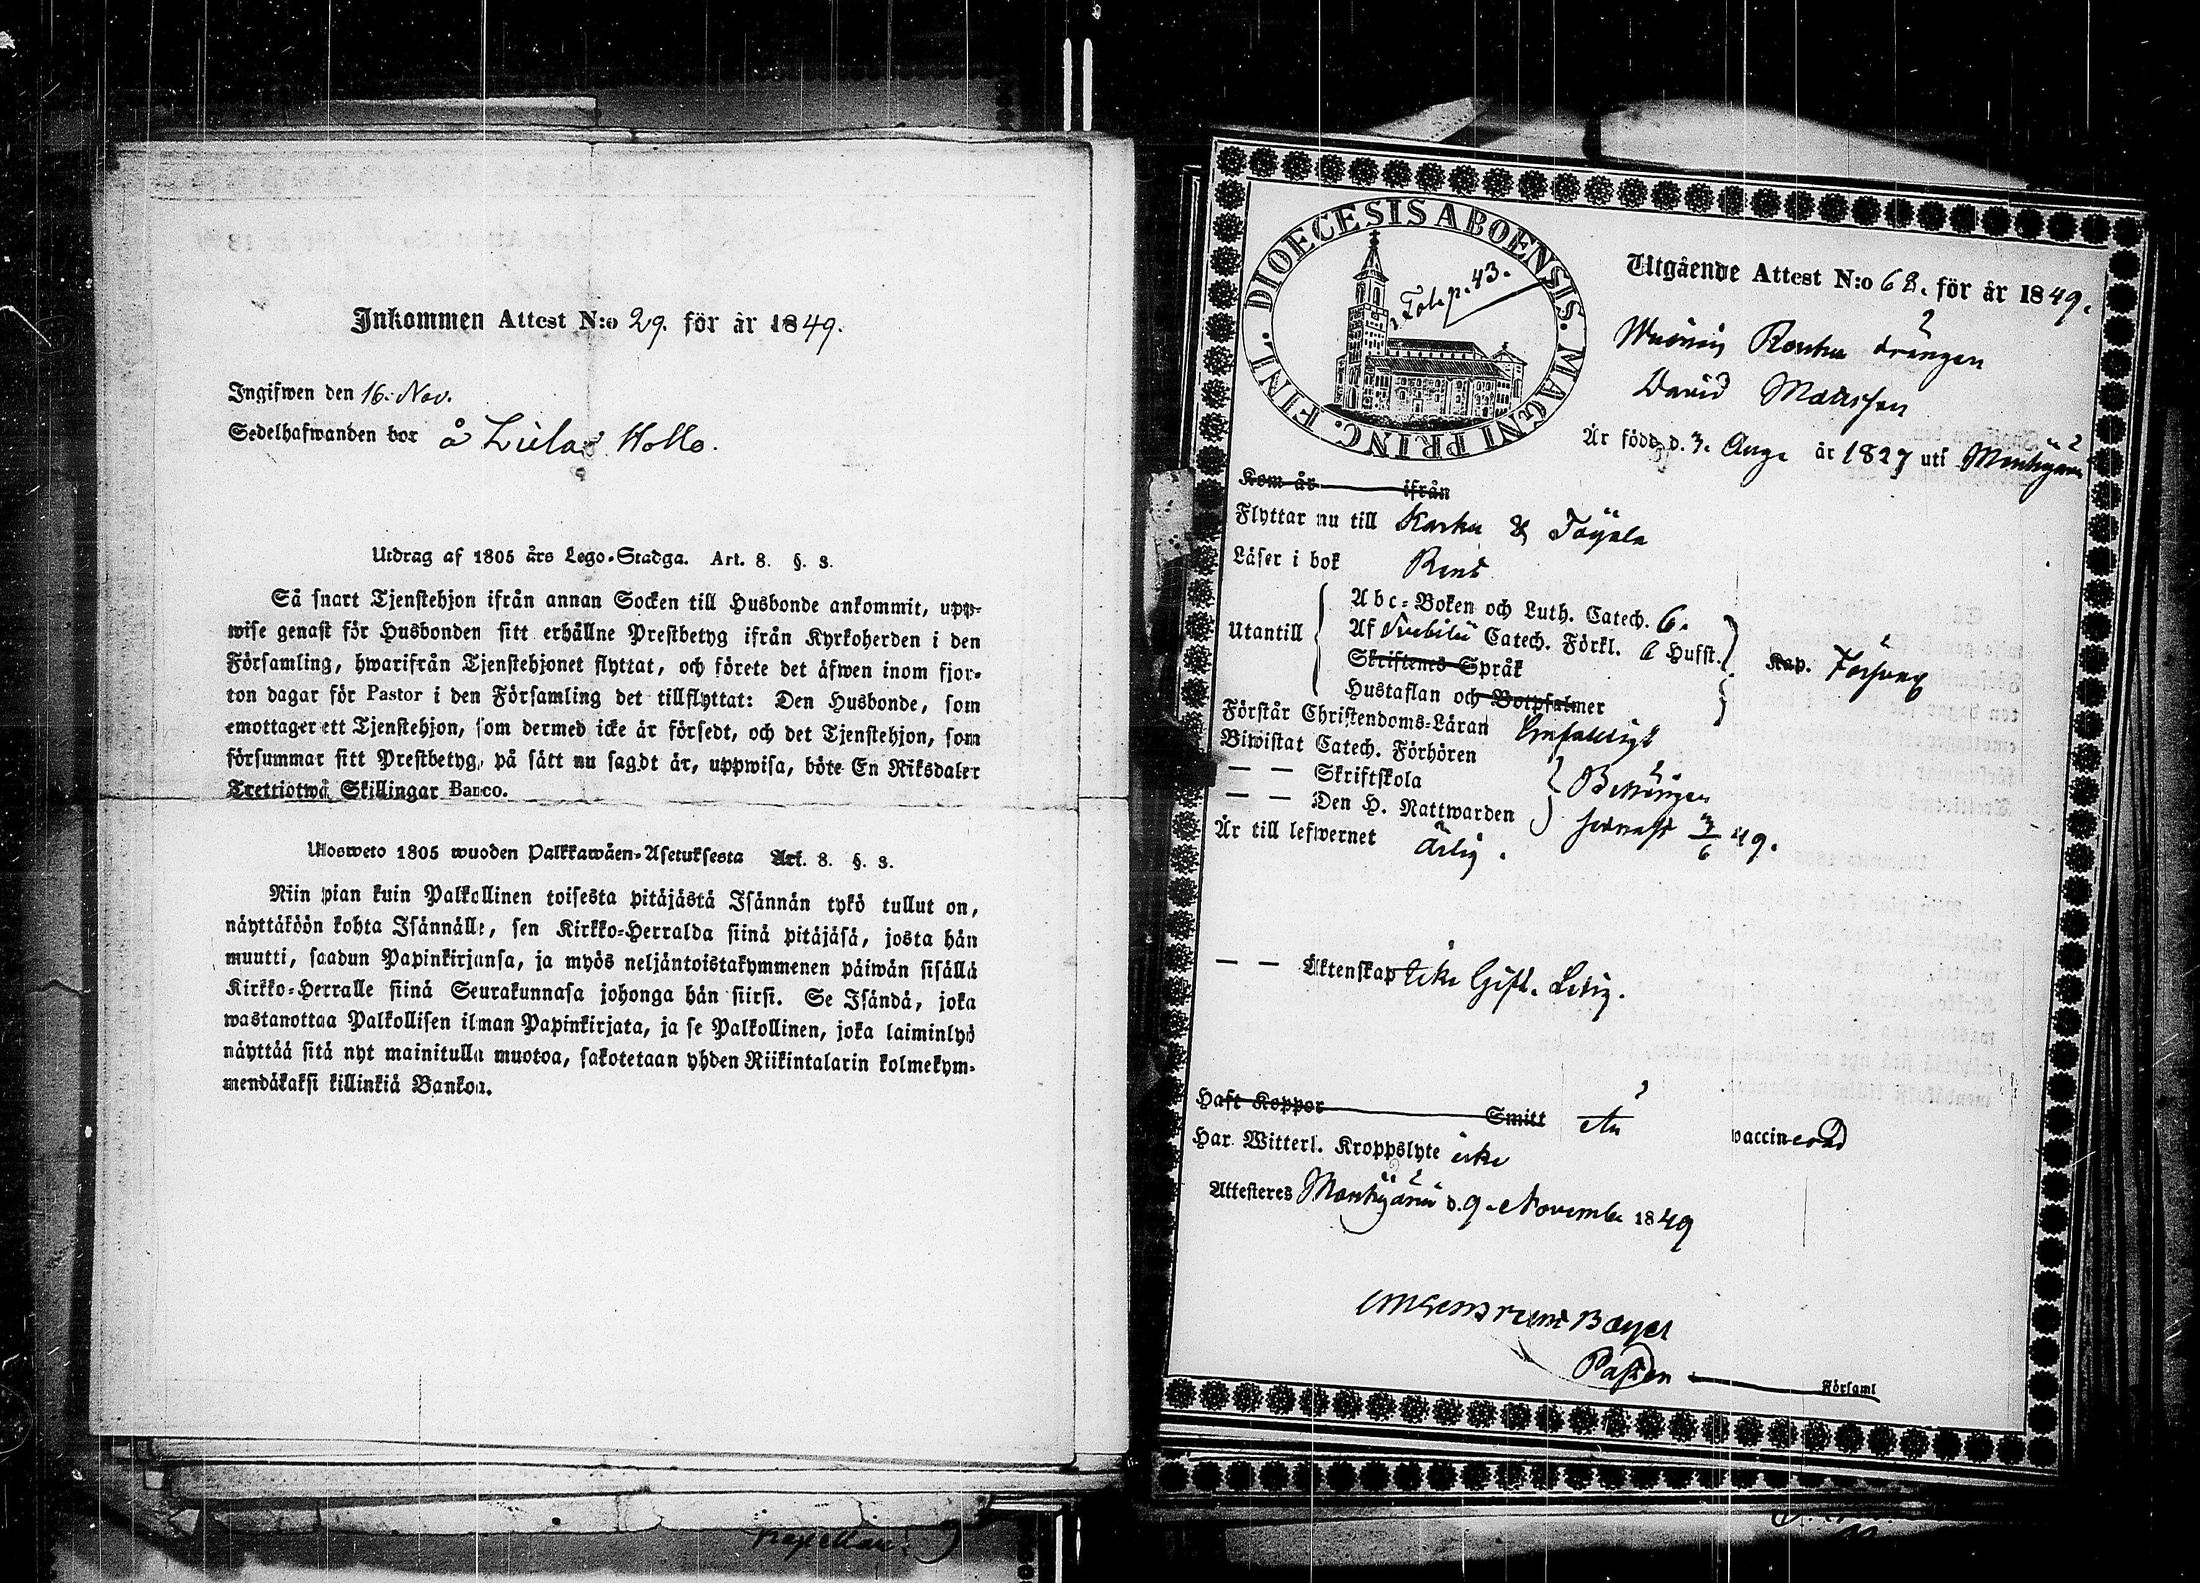 Inkommen Attest N:o 29. för år 1849.
Ingifwen den 16. Nov.
Sedelhafwanden bor å Liela Hollo.
Utdrag af 1805 års Lego-Stadga. Art. 8. §. 3.
Så snart Tjenstehjon ifrån annan Socken till Husbonde ankommit, upp-
wise genast för Husbonden sitt erhållne Prestbetyg ifrån Kyrkoherden i den
Församling, hwarifrån Tjenstehjonet flyttat, och förete det äfwen inom fjor-
ton dagar för Pastor i den Församling det tillflyttat: Den Husbonde, som
emottager ett Tjenstehjon, som dermed icke är försedt, och det Tjenstehjon, som
försummar sitt Prestbetyg, på sätt nu sagdt är, uppwisa, böte En Riksdaler
Trettiotwå Skillingar Banco.
Ulosweto 1805 wuoden Palkkawäen-Asetuksesta Art. 8. §. 3.
Niin pian kuin Palkollinen toisesta pitäjästä Isännän tykö tullut on,
näyttäköön kohta Isännälle, sen Kirkko-Herralda siinä pitäjäsä, josta hän
muutti, saadun Papinkirjansa, ja myös neljäntoistakymmenen päiwän sisällä
Kirkko-Herralle siinä Seurakunnasa johonga hän siirsi. Se Isändä, joka
wastanottaa Palkollisen ilman Papinkirjata, ja se Palkollinen, joka laiminlyö
näyttää sitä nyt mainitulla muotoa, sakotetaan yhden Riikintalarin kolmekym-
mendäkaksi killinkiä Bankoa.
DIOECESIS ABOENSIS. MAGNI PRINC. FINL.
Tol. p. 43.
Utgående Attest N:o 68. för år 1849.
drängen
David Matsson
Är född d. 3. Aug. år 1827 uti Mouhijärvi
Kom år ifrån
Flyttar nu till Karku & Töyälä
Läser i bok Rent
Utantill
Abc-Boken och Luth. Catech. 6.
Af Svebilii Catech. Förkl. 6 Hufst.
Skriftenes Språk
Hustaflan och Botpsalmer
Kap. Försvag
Förstår Christendoms-Läran Enfaldigt
Biwistat Catech. Förhören
— — Skriftskola
— — Den H. Nattwarden
senast 3/6 49.
Är till lefwernet Ärlig.
— — Äktenskap icke Gift. Ledig.
Haft Koppor Smitt
vaccinerad
Har Witterl. Kroppslyte icke
Attesteras Mouhijärvi d. 9. Novemb. 1849
Past
Församl